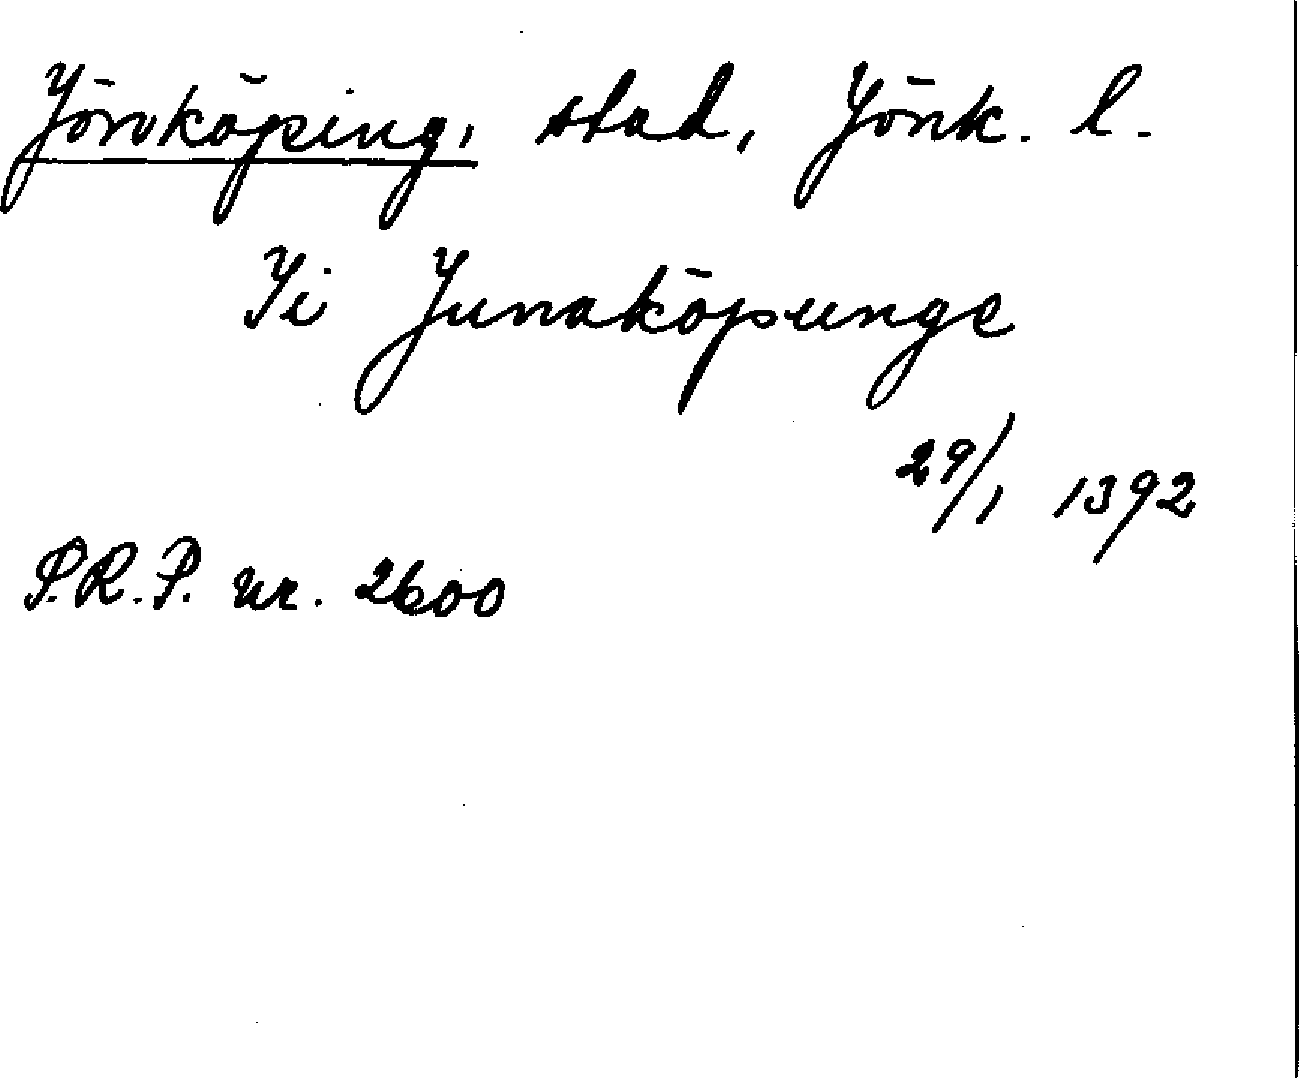 Jönköping, stad, Jönk. l.
Ji Junaköpunge
29/1 1392
S.R.P. nr. 2600